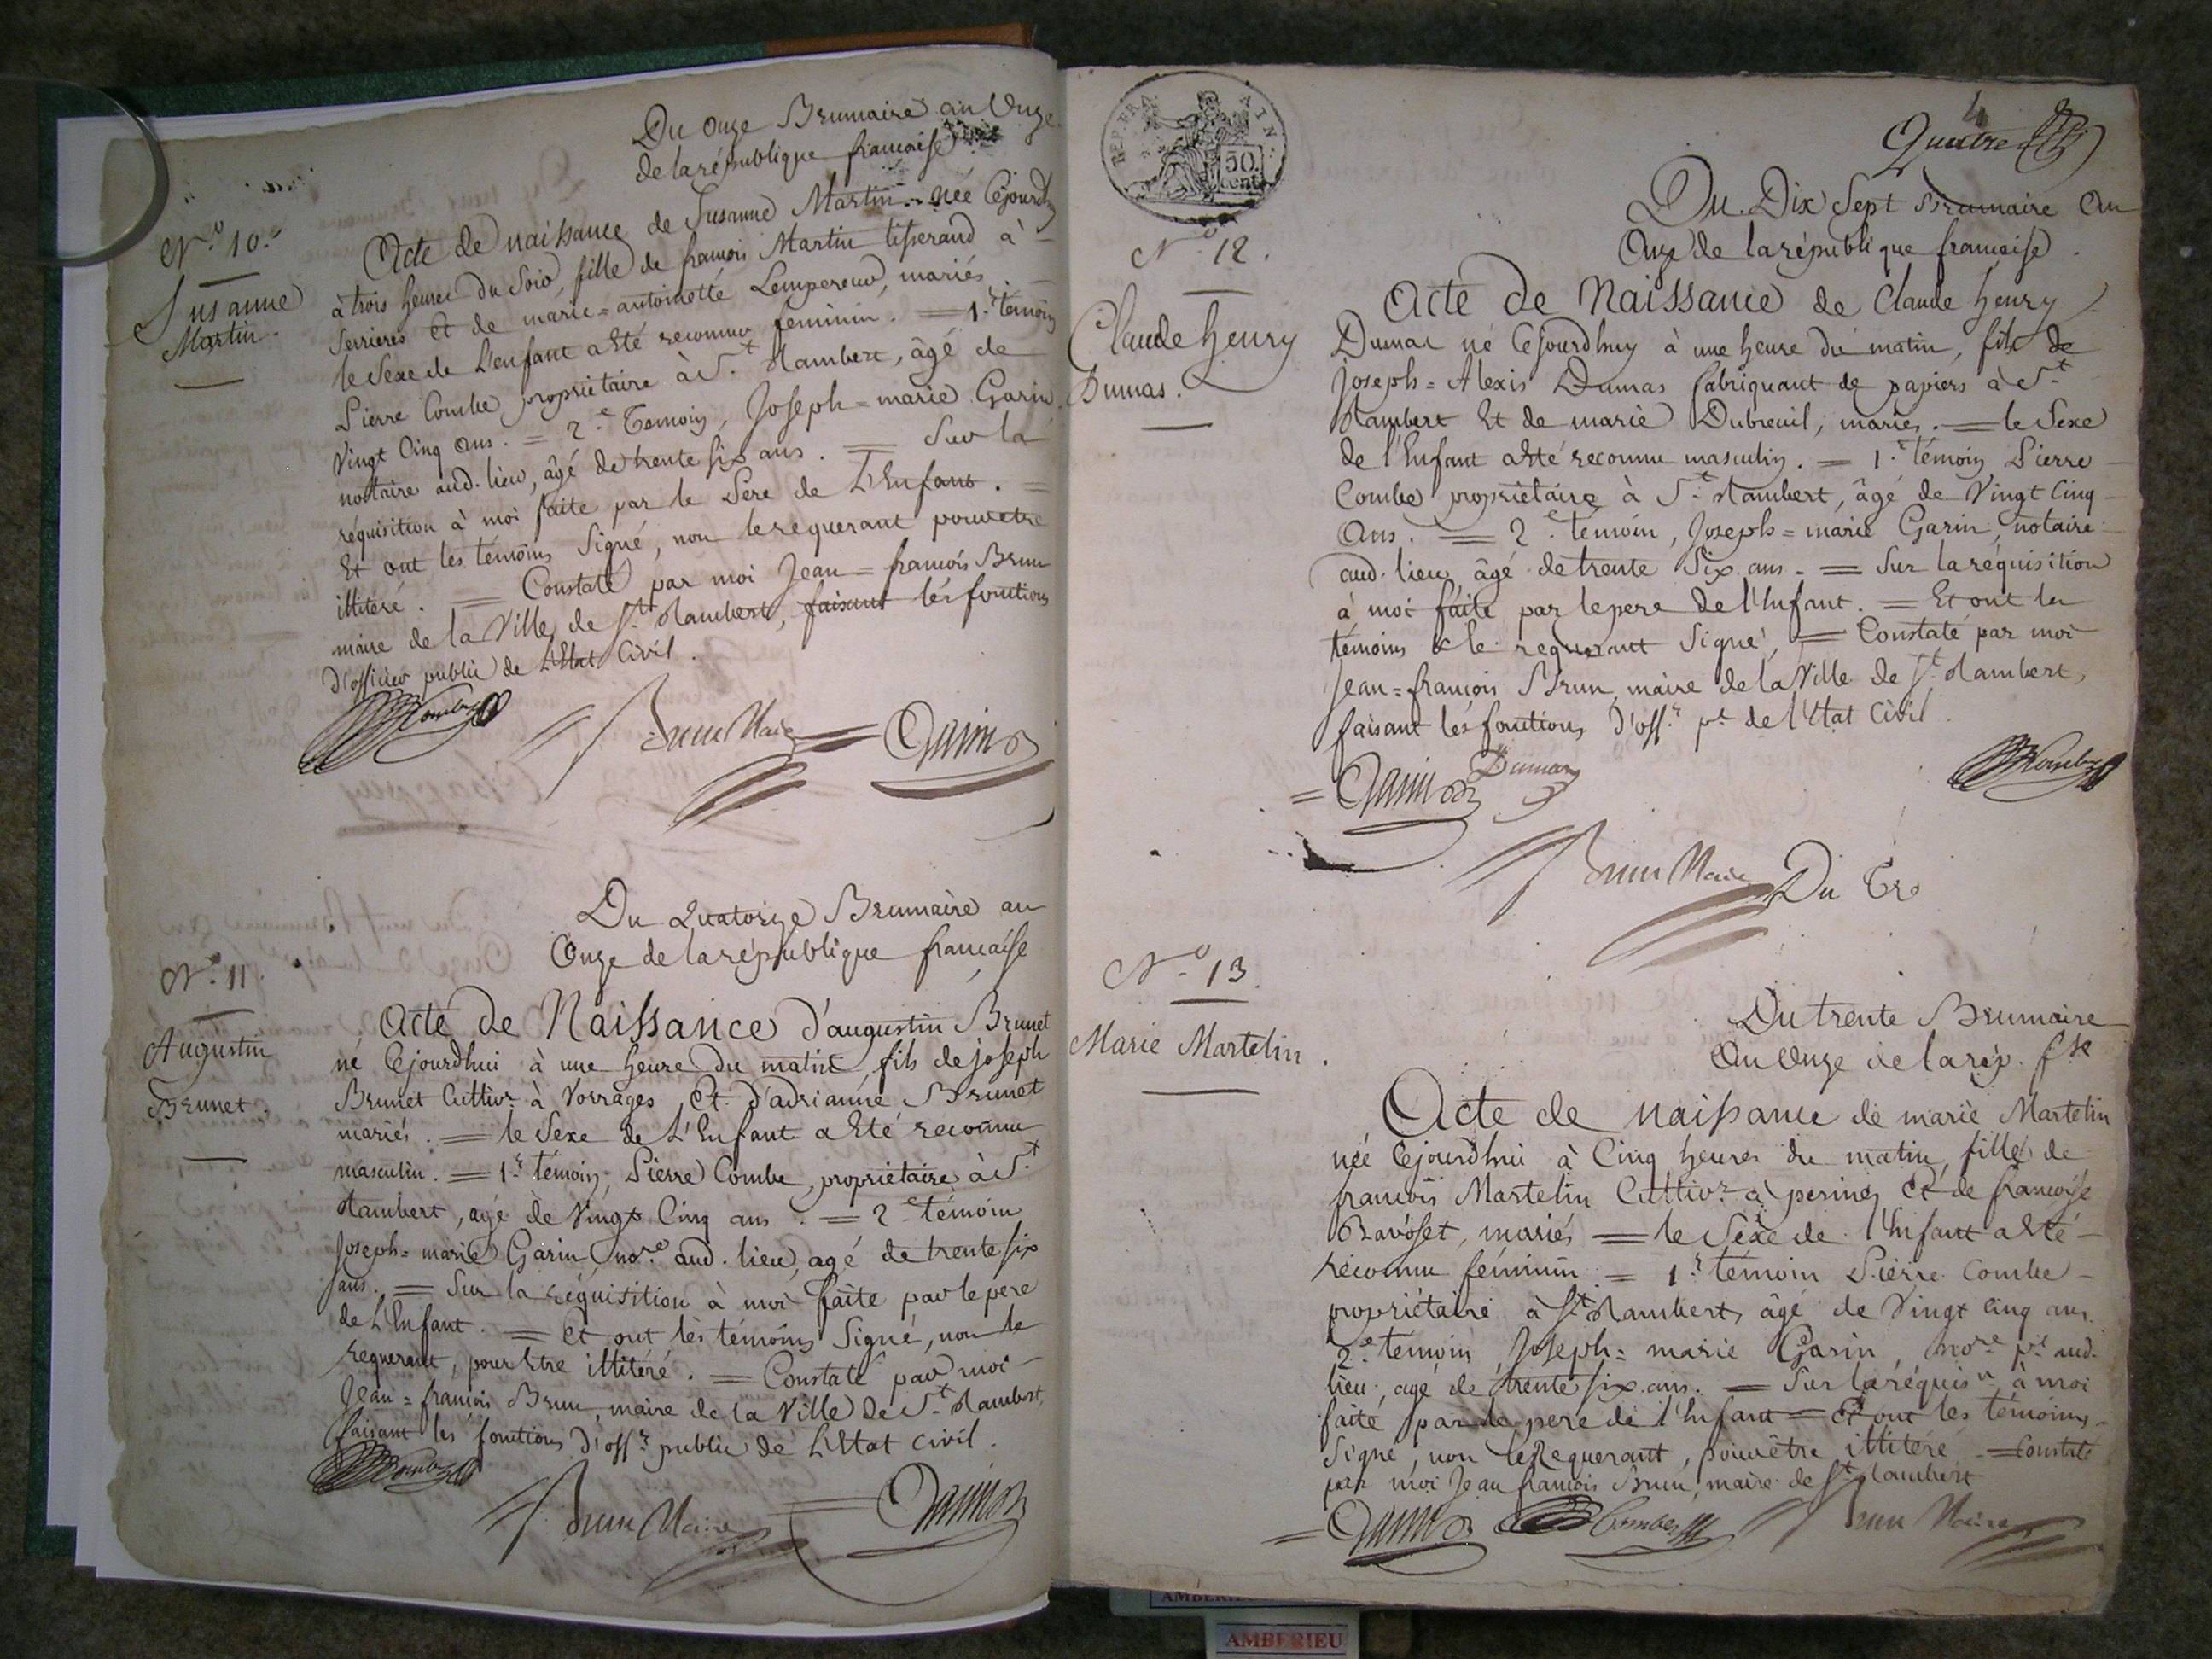 Du onze Brumaire an Onze
de la république francaise
N.o 10.e
Susanne
Martin.
Acte de naissance de Susanne Martin née Cejourdhuy
à trois heures du Soir, fille de francois Martin tisserand à
Serrieres et de marie=antoinette Lempereur, mariés.
le Sexe de L'enfant a Eté reconnu feminin. = 1.r témoin
Pierre Combe propriétaire à S.t Rambert, âgé de
Vingt Cinq ans. = 2.e Temoin, Joseph=marie Garin
notaire aud. lieu, âgé de trente six ans. = Sur la
réquisition à moi faite par le Pere de L'Enfant. =
Et ont les témoins Signé, non le requerant pour etre
illitéré. = Constaté par moi Jean=francois Brun
maire de la Ville de S.t Rambert, faisant les fonctions
d'officier public de L'Etat Civil.
Combe
Brun Maire
Garin
Du Quatorze Brumaire an
Onze de la république francaise
N.o 11.
Augustin
Brunet.
Acte de Naissance d'augustin Brunet
né Cejourdhui à une heure du matin, fils de joseph
Brunet Cultiv.r à Vorrages, Et d'adrianne Brunet
mariés. = le Sexe de L'Enfant a Eté reconnu
masculin. = 1.r témoin, Pierre Combe, propriétaire à S.t
Rambert, agé de Vingt Cinq ans. = 2.e témoin
Joseph=marie Garin, no.re aud. lieu, agé de trente six
ans. = Sur la réquisition à moi faite par le pere
de L'Enfant. = Et ont les témoins Signé, non le
requerant, pour Etre illitéré. = Constaté par moi
Jean=francois Brun, maire de la Ville de S.t Rambert,
faisant les fonctions d'off.r public de L'Etat civil.
Combe
Brun Maire
Garin
REP. FRA.
50
cent
4
Quatre
Du Dix Sept Brumaire an
Onze de la république francaise.
N.o 12.
Claude henry
Dumas.
Acte de Naissance de Claude henry
Dumas né Cejourdhuy à une heure du matin, fils de
Joseph=Alexis Dumas fabriquant de papiers à S.t
Rambert Et de marie Dubreuil, mariés. = le Sexe
de l'Enfant a Eté reconnu masculin. = 1.r témoin Pierre
Combe propriétaire à S.t Rambert, âgé de Vingt Cinq
Ans. = 2.e temoin, Joseph=marie Garin, notaire
aud. lieu âgé de trente Six ans. = Sur la réquisition
à moi faite par le pere de l'Enfant. = Et ont les
témoins & le requerant Signé, = Constaté par moi
Jean=francois Brun, maire de la Ville de S.t Rambert,
faisant les fonctions d'off.r p.c de l'Etat Civil.
Garin
Dumas
Combe
Brun Maire
Du Tre
N.o 13.
Marie Martelin.
Du trente Brumaire
An Onze de la rép. f.se
Acte de naissance de marie Martelin
née Cejourdhui à Cinq heures du matin, fille de
francois Martelin Cultiv.r à et de francoise
Ravoset, mariés = le Sexe de l'Enfant a Eté
reconnu féminin. = 1.r témoin Pierre Combe
propriétaire à S.t Rambert, âgé de Vingt cinq ans.
2.e temoin Joseph=marie Garin, no.re p.c aud.
lieu, agé de trente six ans. = Sur la réquis.n à moi
faite par le pere de l'Enfant = Et ont les témoins
Signé, non le Requerant, pour être illitéré = Constaté
par moi Jean francois Brun, maire de S.t Rambert
Garin
Combe
Brun Maire
AMBERIEU